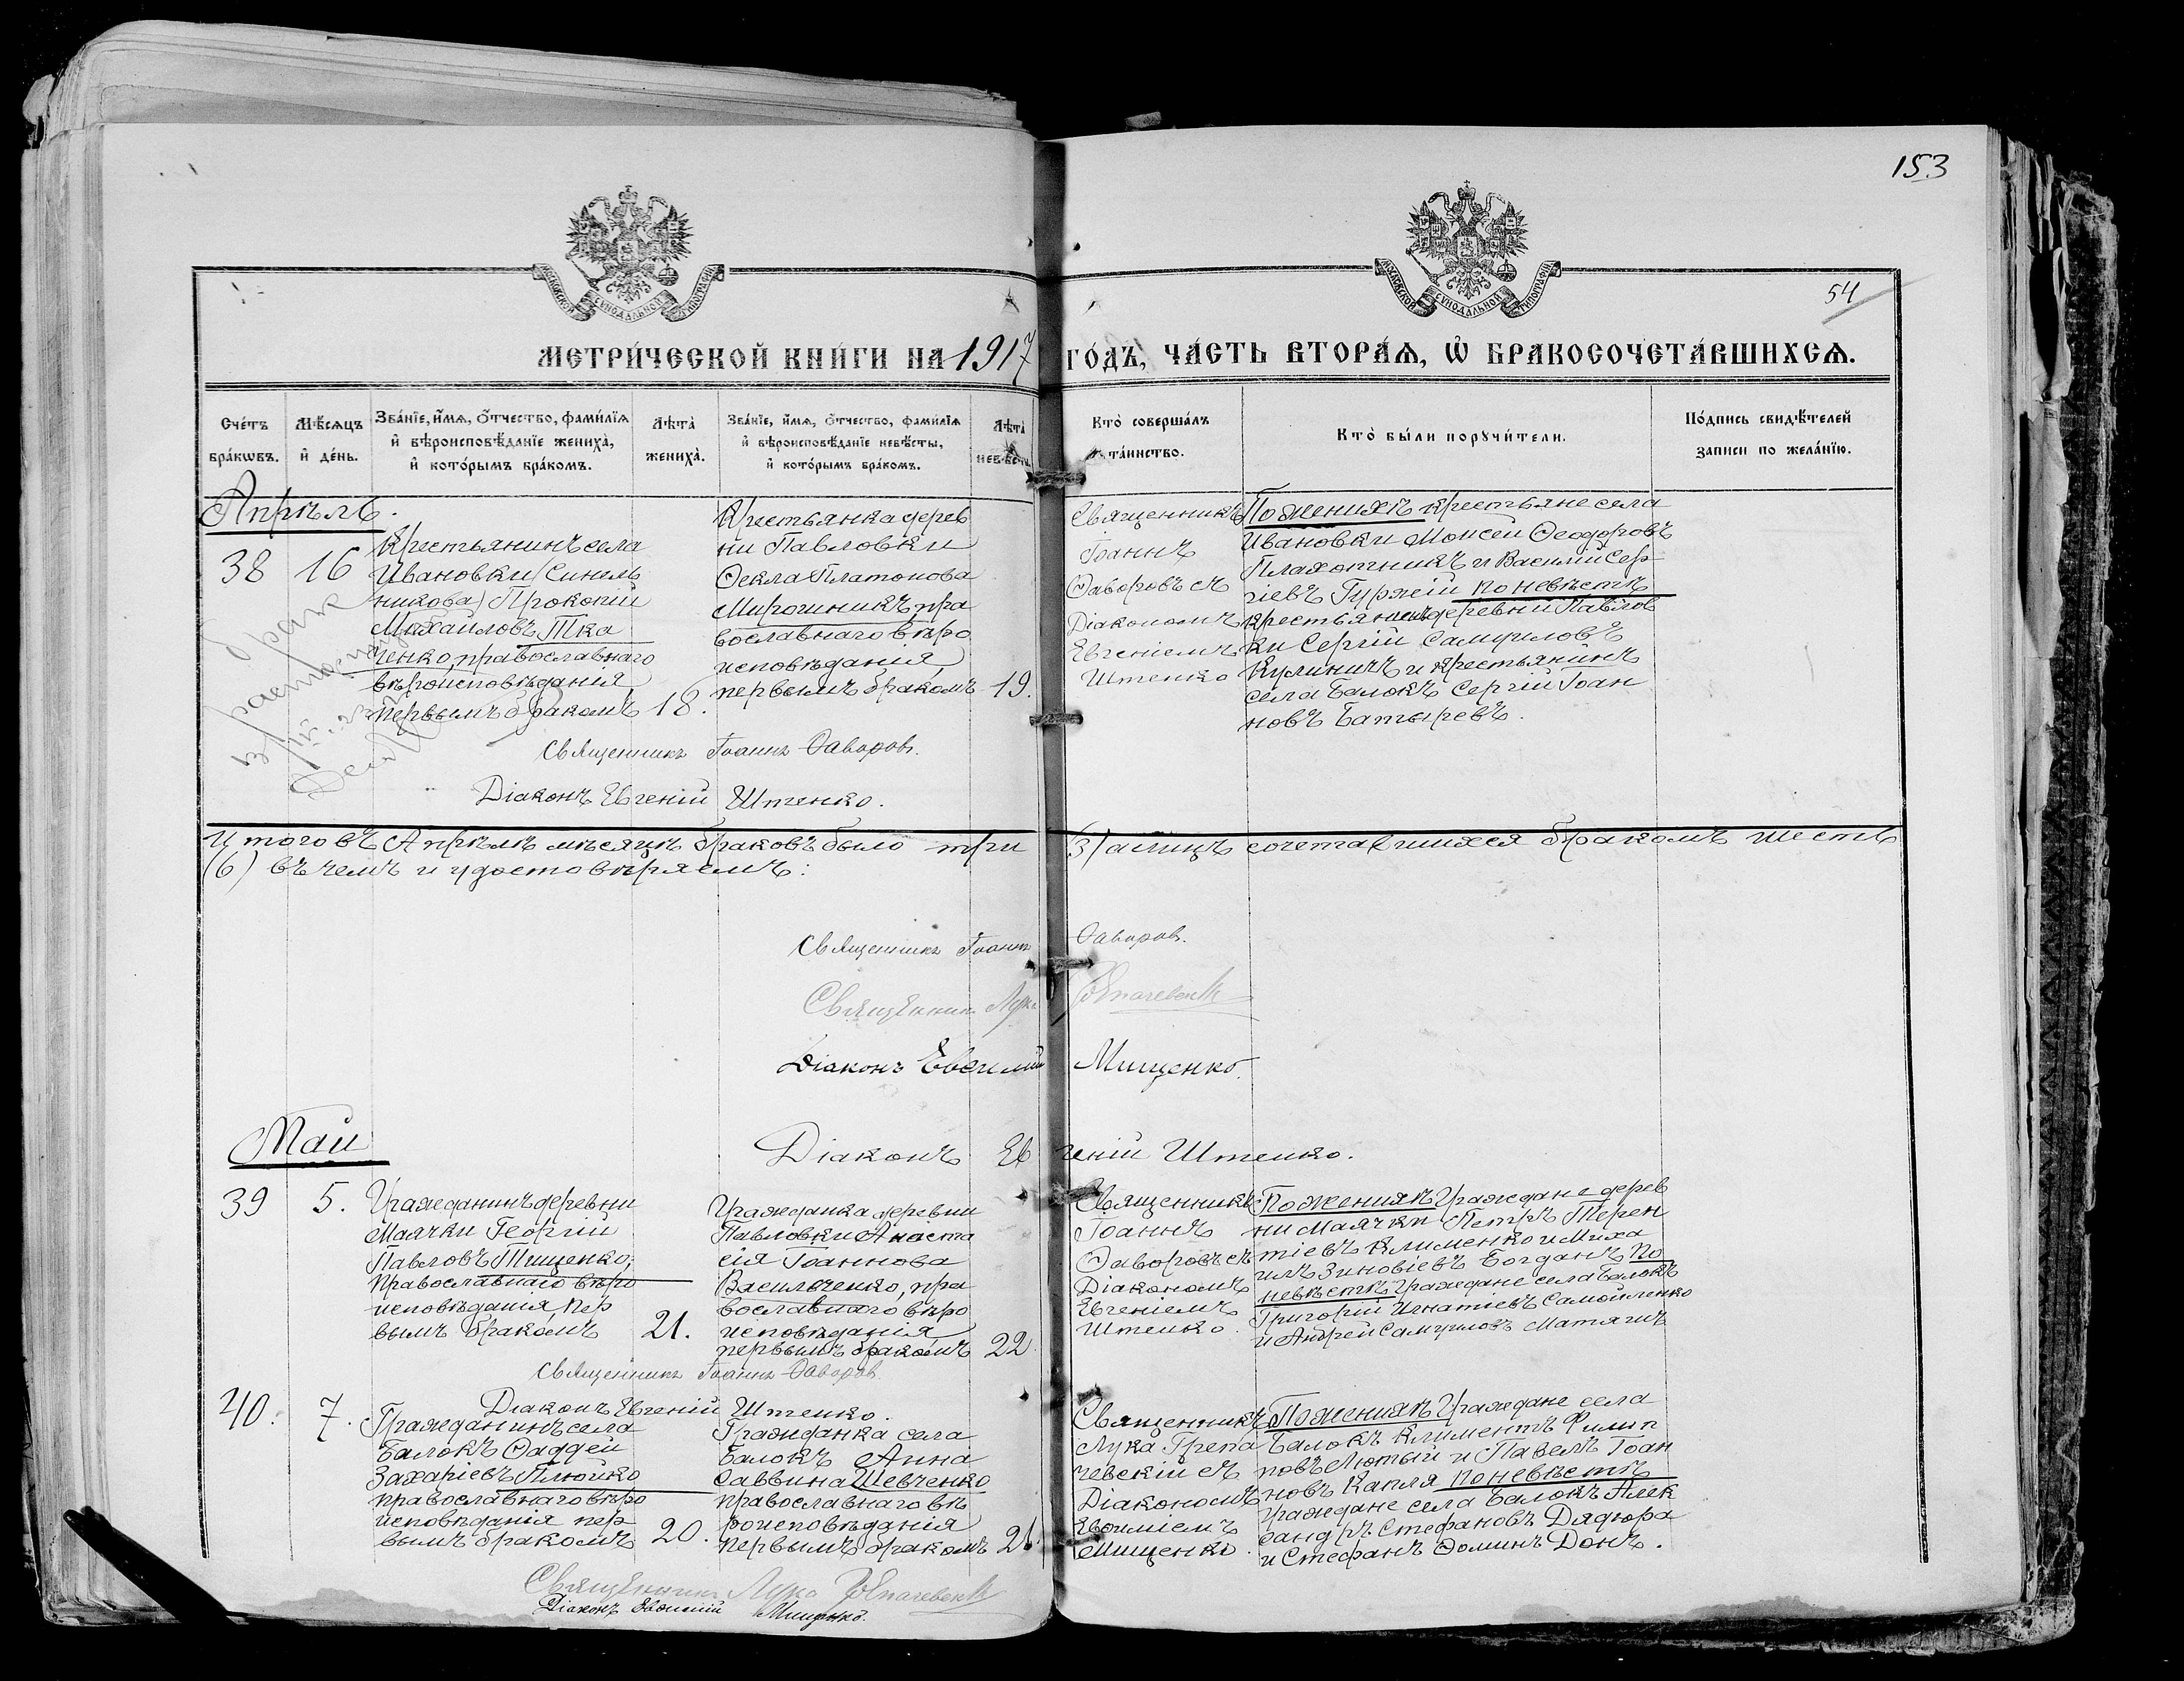 153
54
МОСКОВСКОЙ СѴНОДАЛЬНОЙ ТИПОГРАФІИ
МОСКОВСКОЙ СѴНОДАЛЬНОЙ ТИПОГРАФІИ
МЕТРИ́ЧЕСКОЙ КНИ́ГИ НА 1917 ГО́ДЪ, ЧА́СТЬ ВТОРА́Ѧ, Ѡ БРАКОСОЧЕТА́ВШИХСѦ.
Сче́тъ
бра́кѡвъ.
Мѣ́сѧцъ
и҆ де́нь.
Зва́нїе, и҆́мѧ, ѻ҆́тчество, фами́лїѧ
и҆ вѣроисповѣ́данїе жениха̀,
и҆ кото́рымъ бра́комъ.
Лѣ́та̀
жениха̀.
Зва́нїе, и҆́мѧ, ѻ҆́тчество, фами́лїѧ
и҆ вѣроисповѣ́данїе невѣ́сты,
и҆ кото́рымъ бра́комъ.
Лѣ́та̀
невѣ́сты
Кто̀ соверша́лъ
та́инство.
Кто̀ бы́ли порꙋчи́тели.
По́дпись свидѣ́телей
записи по жела́нїю.
Апрѣль.
38
16
Крестьянинъ села
Ивановки (Синель
никова) Прокопій
Михаиловъ Тка
ченко, православнаго
вѣроисповѣданія
первымъ бракомъ
18.
Крестьянка дерев
ни Павловки
Ѳекла Платонова
Мирошникъ, пра
вославнаго вѣро
исповѣданія
первымъ бракомъ
19.
Священникъ
Іоаннъ
Ѳаворовъ съ
Діакономъ
Евгеніемъ
Штенко
По женихѣ крестьяне села
Ивановки Моисей Ѳеодоровъ
Плахотникъ и Василій Сер
гіевъ Гуржій по невѣстѣ
крестьянинъ деревни Павлов
ки Сергій Самуиловъ
Кулиничъ и крестьянинъ
села Балокъ Сергій Іоан
новъ Батыревъ.
брак
расторг
Священникъ Іоаннъ Ѳаворовъ.
Діаконъ Евгеній Штенко.
Итого въ Апрѣлѣ мѣсяцѣ браковъ было три (3) а лицъ сочетавшихся бракомъ шесть
(6) въ чемъ и удостовѣряемъ:
Священникъ Іоаннъ Ѳаворовъ.
Священник Лука
Діаконъ Евѳимій Мищенко.
Діаконъ Евгеній Штенко.
Май
39
5.
Гражданинъ деревни
Маячки Георгій
Павловъ Тищенко,
православнаго вѣро
исповѣданія, пер
вымъ бракомъ
21.
Гражданка деревни
Павловки Анаста
сія Іоаннова
Васильченко, пра
вославнаго вѣро
исповѣданія
первымъ бракомъ
22
Священникъ
Іоаннъ
Ѳаворовъ съ
Діакономъ
Евгеніемъ
Штенко.
По женихѣ Граждане дерев
ни Маячки Петръ Терен
тіевъ Клименко и Миха
илъ Зиновіевъ Богданъ По
невѣстѣ Граждане села Балокъ
Григорій Игнатіевъ Самойленко
и Андрей Самуиловъ Матяшъ
Священникъ Іоаннъ Ѳаворовъ
Діаконъ Евгеній Штенко.
40.
7.
Гражданинъ села
Балокъ Ѳаддей
Захаріевъ Плюйко
православнаго вѣро
исповѣданія пер
вымъ бракомъ
20.
Гражданка села
Балокъ Анна
Саввина Шевченко
православнаго вѣ
роисповѣданія
первымъ бракомъ
21.
Священникъ
Лука Грепа
чевскій съ
Діакономъ
Евѳиміемъ
Мищенко.
По женихѣ Граждане села
Балокъ Климентъ Филип
повъ Лютый и Павелъ Іоан
новъ Капля по невѣстѣ
граждане села Балокъ Алек
сандръ Стефановъ Дядюра
и Стефанъ Ѳоминъ Донъ.
Священник Лука
Діаконъ Евѳимій Мищенко.